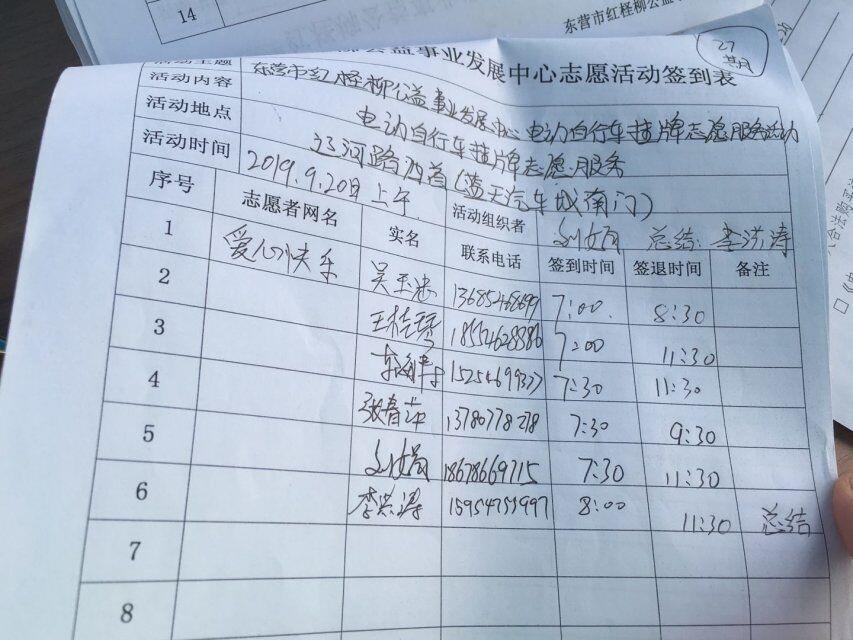 14
东营市红柽柳公益
27
益事业发展中心志愿活动签到表
活动主题 东营市红柽柳公益事业发展中心电动自行车挂牌志愿服务活动
活动内容 电动自行车挂牌志愿服务
活动地点 辽河路 (蓝天汽车城南门)
活动时间 2019.9.20日上午 活动组织者 刘娟 总结:李洪涛
序号 志愿者网名 实名 联系电话 签到时间 签退时间 备注
1 爱心快乐 吴玉忠 13685468699 7:00 8:30
2 18554628886 7:00 11:30
3 15254699377 7:30 11:30
4 张春萍 13780778278 7:30 9:30
5 刘娟 18678669715 7:30 11:30
6 李洪涛 15954759997 8:00 11:30 总结
7
8